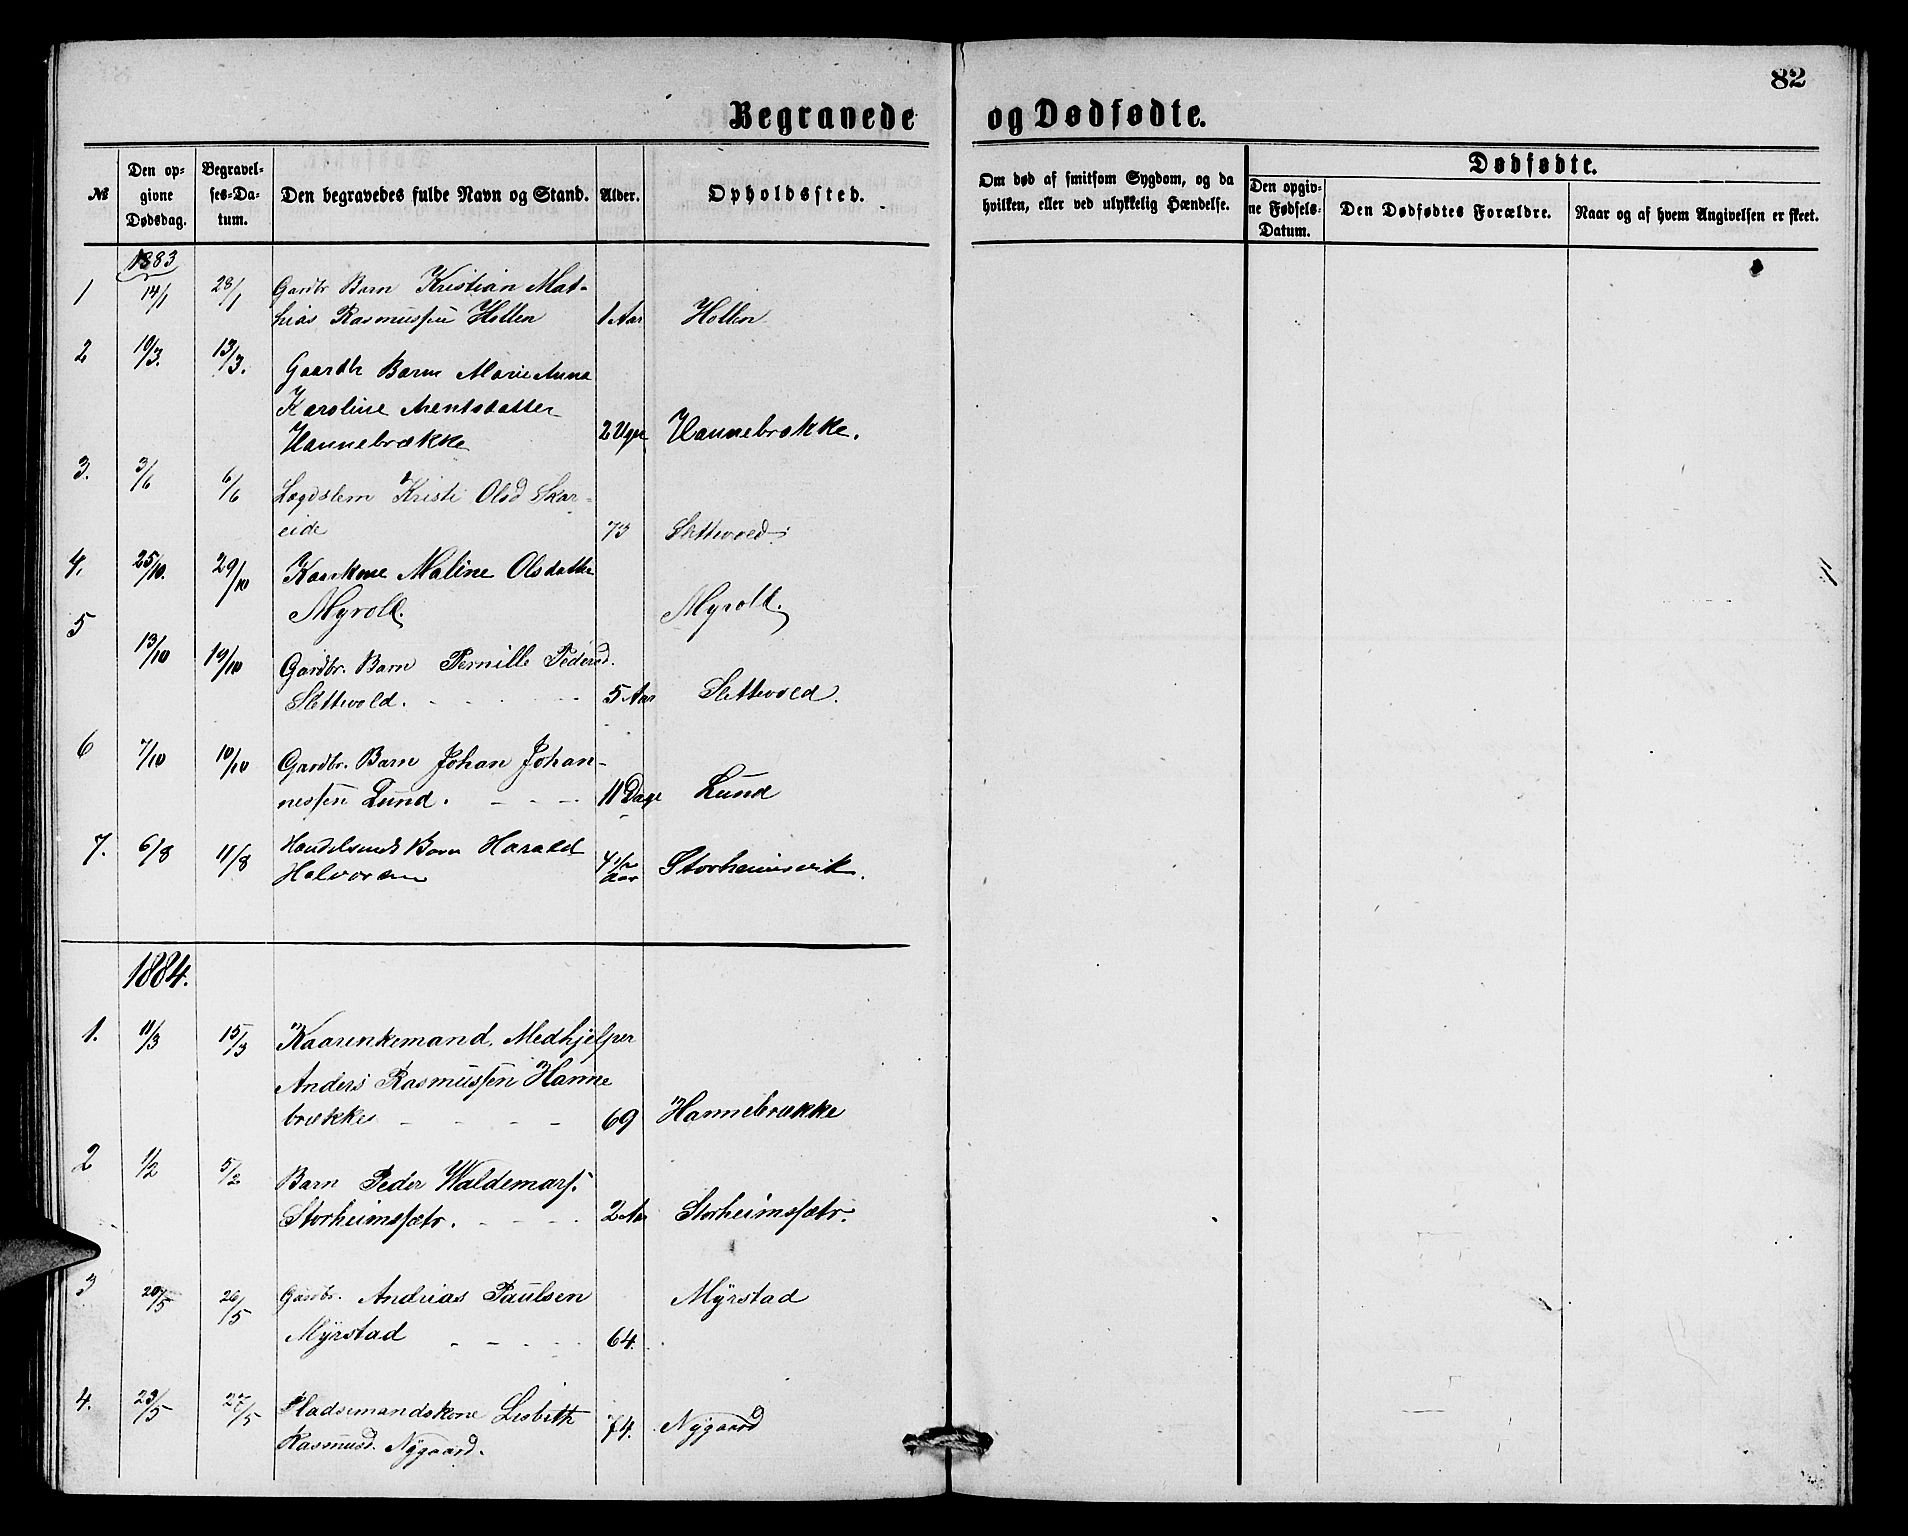 82
Begravede og Dødfødte.
№ Den opgivne Dødsdag. Begravelses-Datum. Den begravedes fulde Navn og Stand. Alder. Opholdssted. Om død af smitsom Sygdom, og da hvilken, eller ved ulykkelig Hændelse. Dødfødte. Den opgivne Fødsels-Datum. Den Dødfødtes Forældre. Naar og af hvem Angivelsen er skeet.
1883
1 14/1 28/1 Gardbr Barn Kristian Mat-
hias Rasmussen Hollen 1 Aar Hollen
2 10/3. 13/3. Gaardbr Barn Marie Anna
Karoline Arentsdatter
Hannebrække 2 Uger Hannebrække.
3. 3/6 6/6 Lægdslem Kristi Olsd Skar-
eide 73 Slettevold
4. 25/10. 29/10 Kaarkone Maline Olsdatter
Myrold. Myrold.
5 13/10 19/10 Gardbr. Barn Pernille Pedersd.
Slettevold. 5 Aar Slettevold.
6 7/10 10/10 Gardbr. Barn Johan Johan-
nessen Lund. 11 Dage Lund
7. 6/8 11/8 Handelsmds Barn Harald
Halvorsen 4 1/2 Aar Storheimsvik.
1884.
1. 11/3 15/3 Kaarenkemand, Medhjelper
Anders Rasmussen Hanne
brække 69 Hannebrække
2 1/2 5/2 Barn Peder Waldemars.
Storheimssætr. 2 Aar Storheimssætr.
3 20/5 26/5 Gardbr. Andrias Paulsen Myrstad
Myrstad 64.
4. 23/5 27/5 Pladsemandskone Lisbeth
Rasmusd. Nygaard. 74. Nygaard